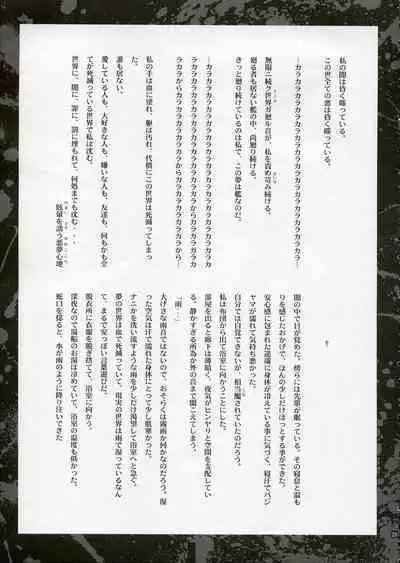 私の闇は皆く嗤っている。
この世全ての悪は皆く嗤っている。
―カラカラカラカラカラカラカラカラカラカラカラカラカラ
カラカラカラカラカラカラカラカラカラカラカラカラカラ―
無限ニ続ク世界ガ廻ル音が、私を責め苛み続ける。
廻る者も居ない檻の中、尚廻り続ける。
きっと廻り続けているのは私で、この夢は檻なのだ。
―カラカラカラカラカラカラカラカラカラカラカラカラカラ
カラカラからカラカラカラカラからカラカラカラカラから―
私の手は血に塗れ、躯は汚れ、代償にこの世界は死滅してしまっ
た。
誰も居ない。
愛している人も、大好きな人も、嫌いな人も、友達も、何もかも全
てが死滅している世界で私は沈む。
世界に、闇に、罪に、罰に埋もれて、何処までも沈む・・・
闇の中で目が覚めた。傍らには先輩が眠っている。その寝息と温も
りを感じたおかげで、ほんの少しだけほっとする事ができた。
安心感に包まれた途端に身体が冷えている事に気づく、寝汗でパジ
ャマが濡れて気持ち悪かった。
自分では自覚できないが、相当魘されていたのだろう。
私は布団から出て浴室に向かうことにした。
部屋を出ると廊下は薄暗く、夜気がヒンヤリと空間を支配してい
る。静かすぎる所為か外の音まで聞こえてしまう。
「雨…」
大げさな雨音ではないので、おそらくは霧雨か何かなのだろう。湿
った空気は汗で濡れた身体にとって少し肌寒かった。
ナニかを洗い流すような雨を少しだけ渇望して浴室へと急ぐ。
夢の世界は血で死滅していて、現実の世界は雨で湿っているなん
て、まるで安っぽい言葉遊びだ。
脱衣所に衣服を脱ぎ捨てて、浴室に向かう。
深夜なので湯船のお湯は冷めていて、浴室の温度も低かった。
蛇口を捻ると、水が雨のように降り注いできた